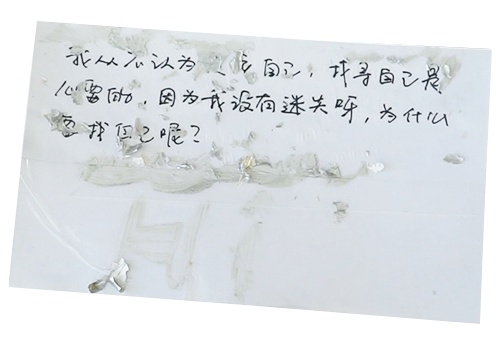 我从不认为 自己，找寻自己是
必要的，因为我没有迷失呀，为什么
要找自己呢？